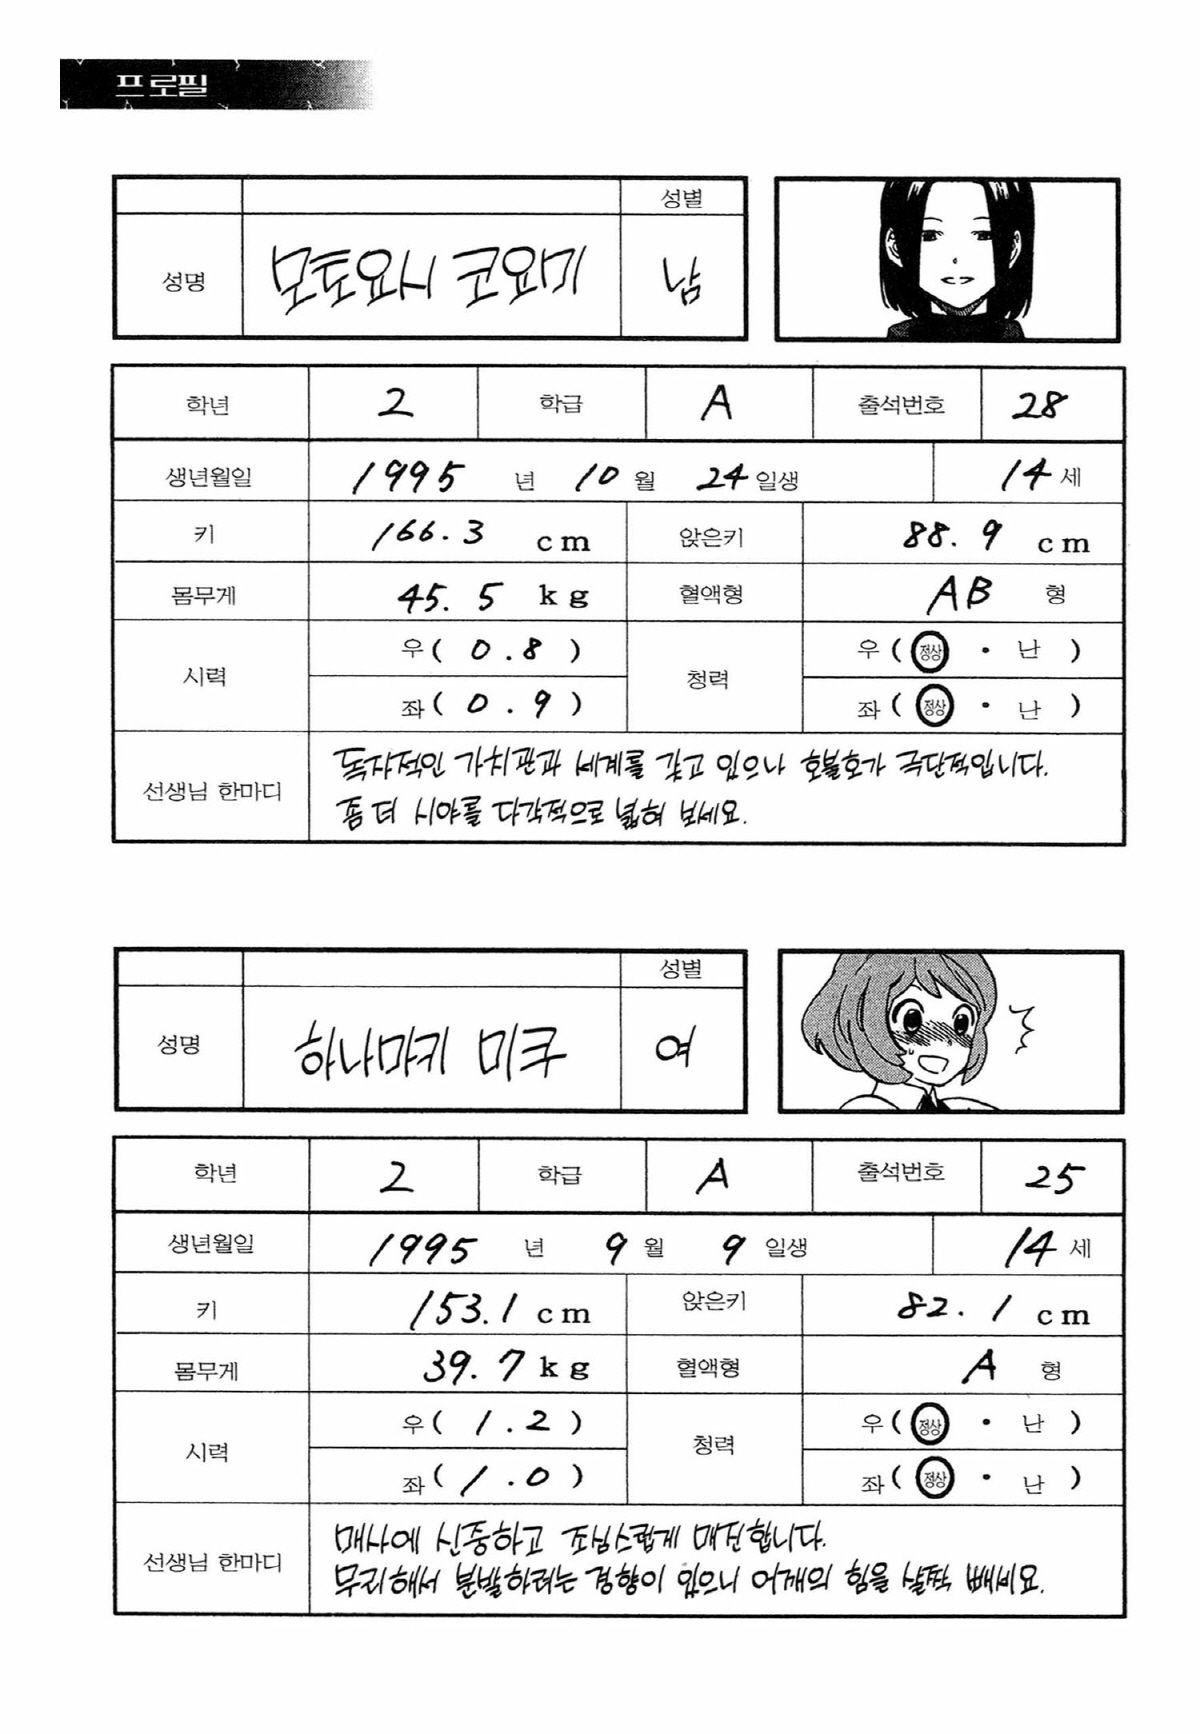 프로필
성별
성명 모토요시 코요미 남
학년 2 학급 A 출석번호 28
생년월일 1995 년 10 월 24 일생 14 세
키 166.3 cm 앉은키 88.9 cm
몸무게 45.5 kg 혈액형 AB 형
시력 우( 0.8 ) 청력 우( 정상 · 난 )
좌( 0.9 ) 좌( 정상 · 난 )
선생님 한마디 독자적인 가치관과 세계를 갖고 있으나 호불호가 극단적입니다.
좀 더 시야를 다각적으로 넓혀 보세요.
성별
성명 하나마키 미코 여
학년 2 학급 A 출석번호 25
생년월일 1995 년 9 월 9 일생 14 세
키 153.1 cm 앉은키 82.1 cm
몸무게 39.7 kg 혈액형 A 형
시력 우( 1.2 ) 청력 우( 정상 · 난 )
좌( 1.0 ) 좌( 정상 · 난 )
선생님 한마디 매사에 신중하고 조심스럽게 매진합니다.
무리해서 분발하려는 경향이 있으니 어깨의 힘을 살짝 빼세요.